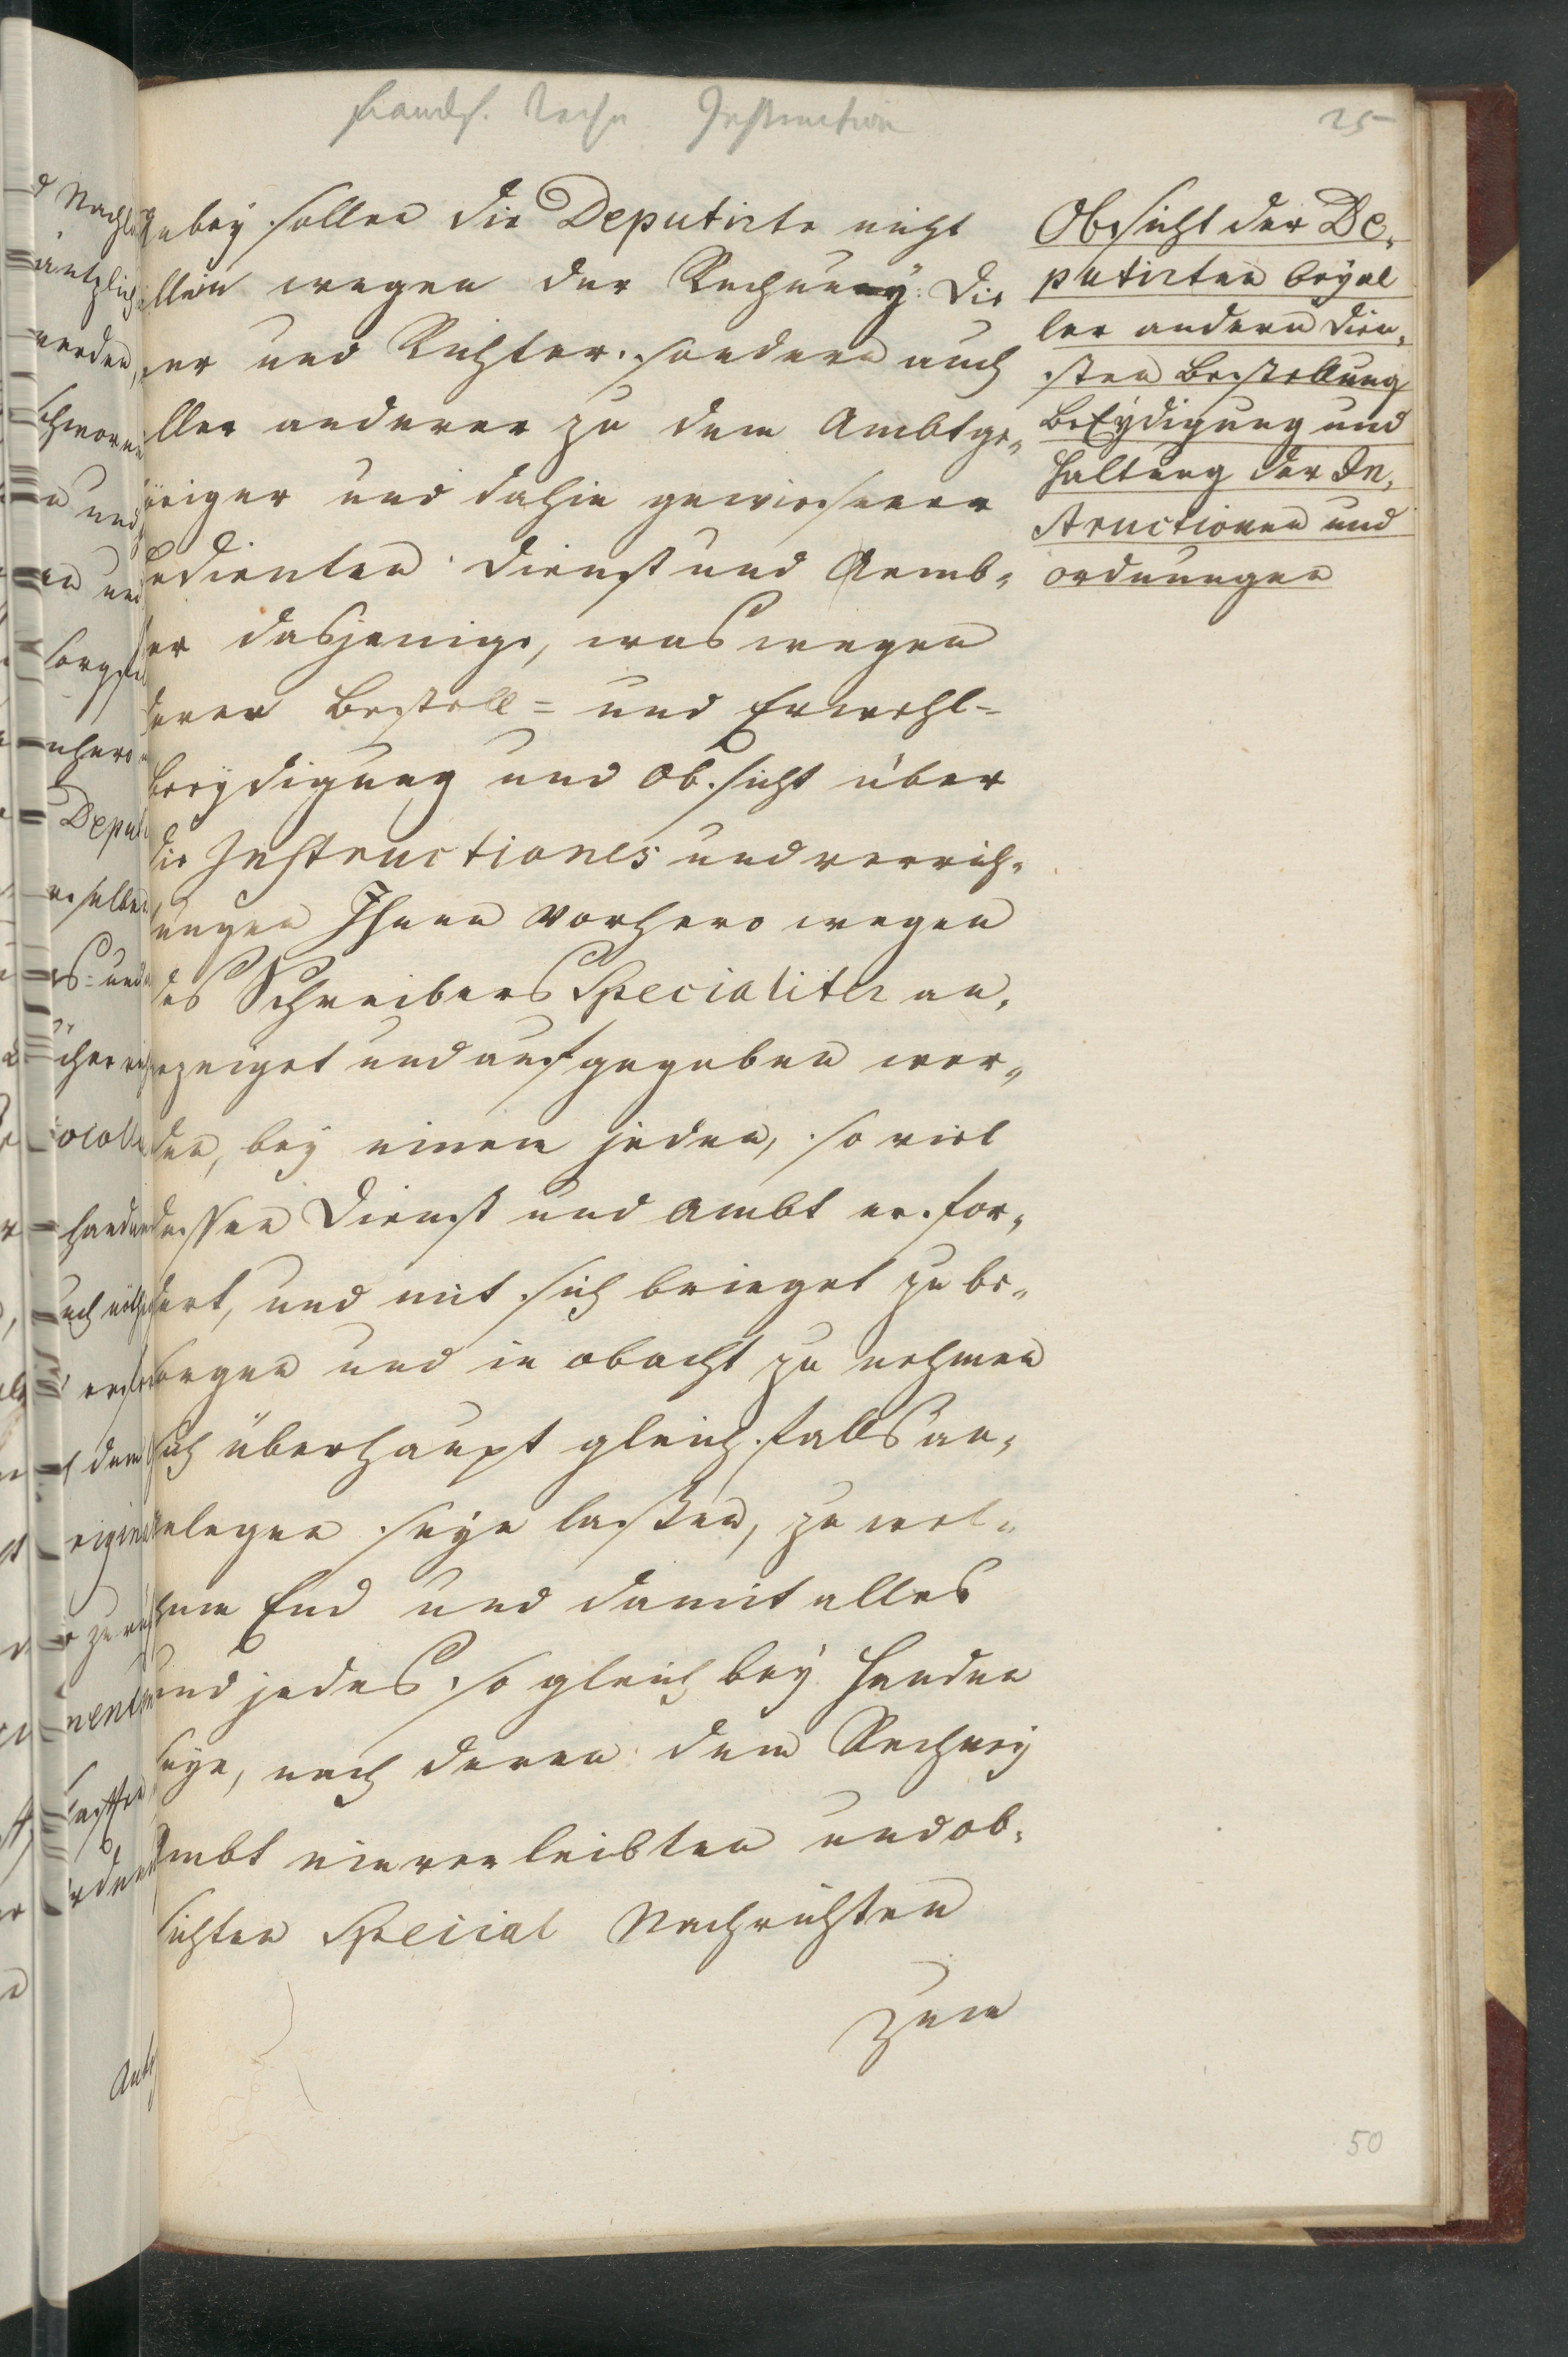 Instruction
25
Anbey sollen die Deputirte nicht
allein wegen der Rechney die
ner und Richter. sondern auch
aller anderer zu dem Ambt ge„
höriger und dahin gewiesener
Bedienten Dienst und Aemb„
ter dasjenige, was wegen
derer Bestell= und Erwehl=
Beeydigung und Obsicht über
die Instructiones und verrich„
tungen Ihnen vorhero wegen
des Schreibers Specialiter an„
gezeiget und aufgegeben wor„
den, bey einem jeden, so viel
dessen Dienst und Ambt erfor„
dert, und mit sich bringet zu be„
sorgen und in obacht zu nehmen
sich überhaupt gleichfalls an„
gelegen seyn laßen, zu wel„
chem End und damit alles
und jedes so gleich bey Handen
seye, nach denen dem Rechney
Ambt einverleibten und ob„
sichten Special Nachrichten
zum
Obsicht der De„
putirten bey al
ler andern Dien„
sten Bestellung
Beeydigung und
Haltung der In„
structionen und
ordnungen
50